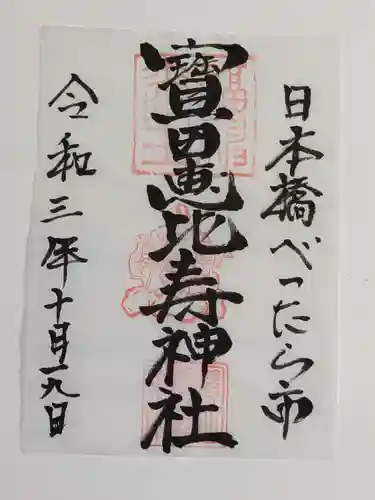 日本橋べったら市
寶田恵比寿神社
令和三年十月十九日